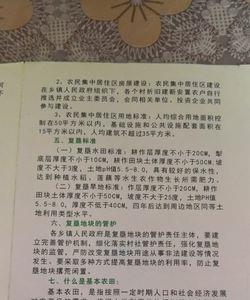 2、农民集中居住区房屋建设：农民集中居住区建设
在乡镇人民政府组织下，各个村拆旧建新安置农户自行
推选并成立业主委员会，会同相关单位，投资企业共同
参与建设。
3、农民集中居住区用地标准：人均综合用地面积控
制在50平方米以内，基础设施和公共设施配套面积在
15平方米以内，人均建筑不超过35平方米。
五、复垦标准
（一）复垦水田标准：耕作层厚度不小于20CM，犁
底层厚度不小于10CM，耕作田块土体厚度不小于50CM，坡
度不大于3度，土地PH值5.5-8.0。具有较好的保水性，
达到种植水稻、莲藕等水生农作物生长所需肥力。
（二）复垦旱地标准：作层厚度不小于20CM，耕作
田块土体厚度不小于50CM，坡度不大于25度，土地PH值
5.5-8.0，厚度不低于40CM，四年后达到周边地区同等土
地利用类型水平。
六、复垦地块的管护
各乡镇人民政府是复垦地块的管护责任主体，要建
立完善管护机制，细化落实村社管护责任，强化复垦地块
的监管，严防改变复垦地块用途从事非法建设等情况
发生。要采取多种方式提高复垦地块的利用率，防止复
垦地块撂荒闲置。
七、什么是基本农田：
基本农田，是指按照一定时期人口和社会经济发展